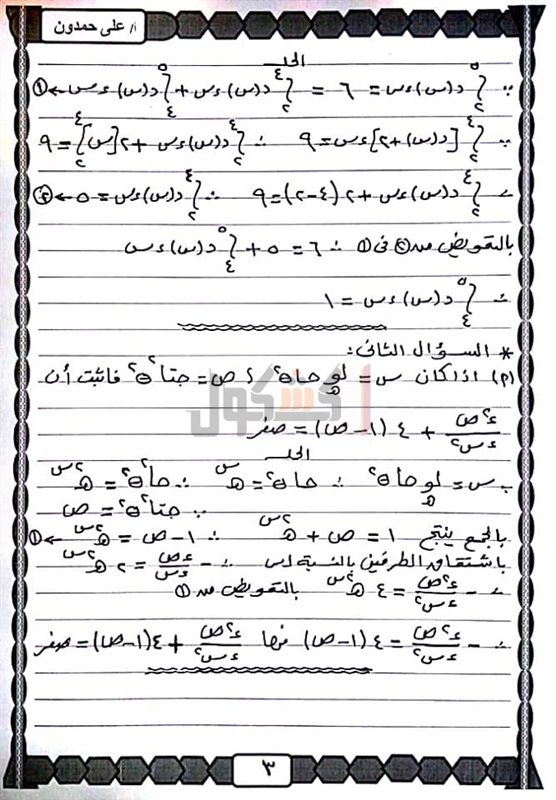 أ/ على حمدون
الحل
∵ ∫₂⁵ د(س) ءس = ٦ = ∫₂⁴ د(س) ءس + ∫₄⁵ د(س) ءس ← ①
∵ ∫₂⁴ [د(س) + ٢] ءس = ٩ ∴ ∫₂⁴ د(س) ءس + ٢[س]₂⁴ = ٩
∴ ∫₂⁴ د(س) ءس + ٢(٤ - ٢) = ٩ ∴ ∫₂⁴ د(س) ءس = ٥ ← ②
بالتعويض من ② فى ① ∴ ٦ = ٥ + ∫₄⁵ د(س) ءس
∴ ∫₄⁵ د(س) ءس = ١
* السؤال الثانى:
(٩) اذا كان س = لو_هـ حا ه ، ص = حتا² ه فاثبت أن
ء²ص/ءس² + ٤(١ - ص) = صفر
الحل
∵ س = لو_هـ حا ه ∴ حا ه = هـ^س ∴ حا² ه = هـ^٢س
∵ حتا² ه = ص
بالجمع ينتج ١ = ص + هـ^٢س ∴ ١ - ص = هـ^٢س ← ①
باشتقاق الطرفين بالنسبة لـ س ∴ - ءص/ءس = ٢ هـ^٢س
∴ - ء²ص/ءس² = ٤ هـ^٢س بالتعويض من ①
∴ - ء²ص/ءس² = ٤(١ - ص) منها ء²ص/ءس² + ٤(١ - ص) = صفر
٣
كشكول